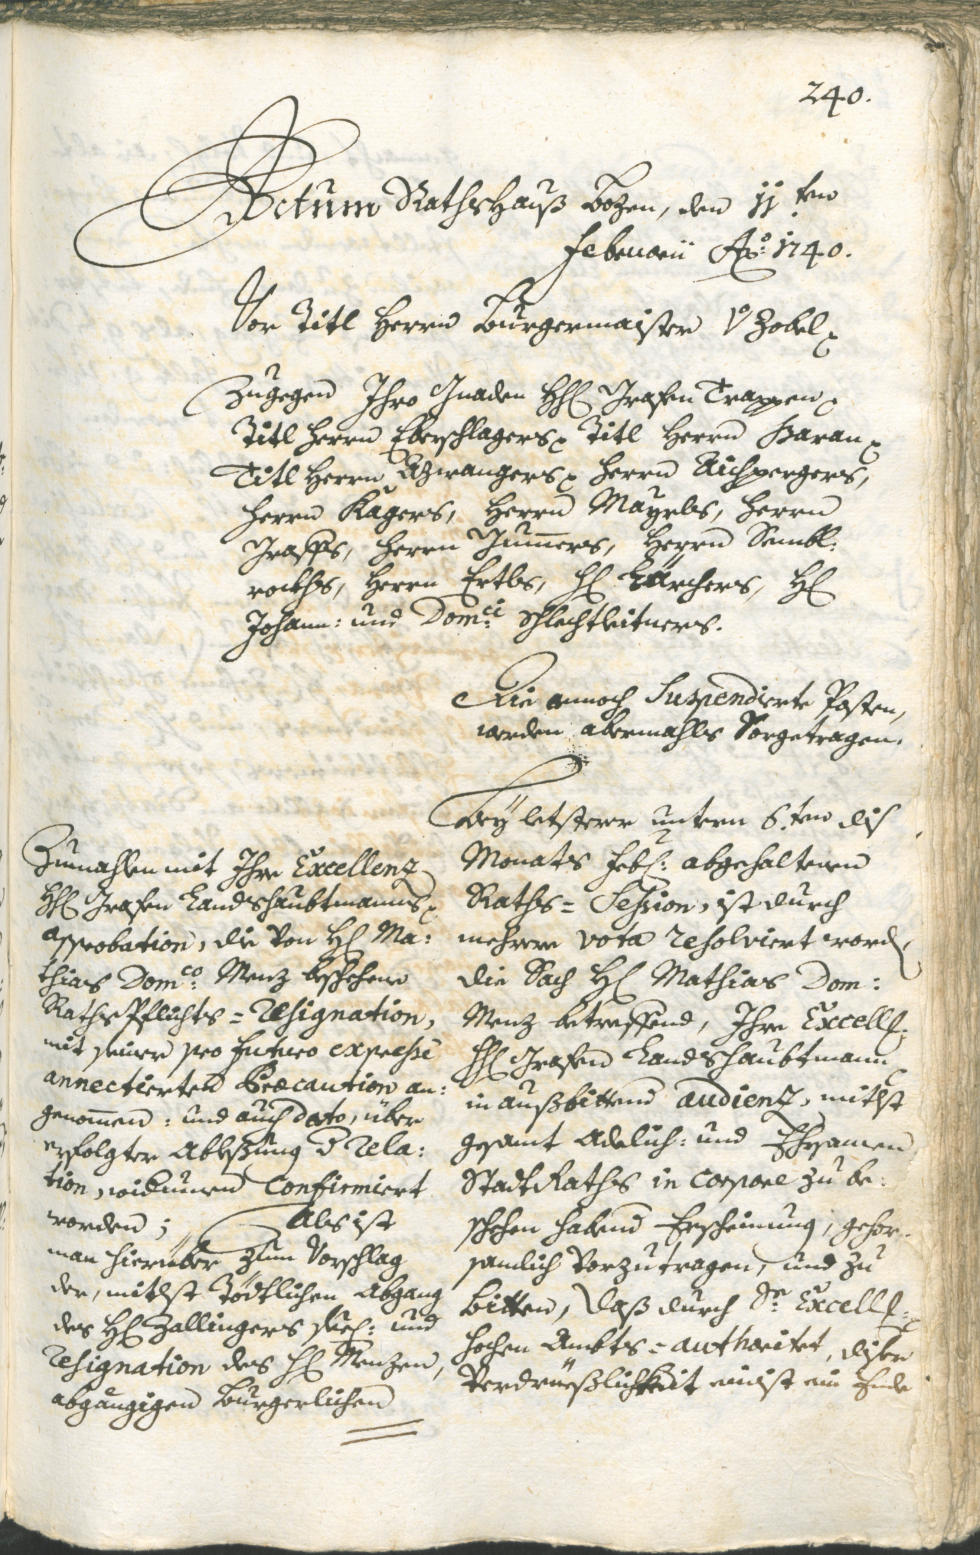 240.
Actum RathsHauß Bozen, den 11.ten
Februarii Ao: 1740.
Vor Titl Herrn Burgermaister v Zobel
Zugegen Ihro Gnaden HH Grafen Trappen
Titl Herrn Eberschlagers Titl Herrn
Titl Herrn Azwangers Herrn Aichpergers,
Herrn Kagers, Herrn Mayrls, Herrn
Graffs, Herrn Gumers, Herrn Sembl:
rocks, Herrn Ertls, H Kürchers, H
Johann: und Dom:ci Schlechtleitners.
Die annoch Suspendierte Posten,
werden abermahls Vorgetragen.
Bey letsterer untern 6.ten dis
Monats Feb: abgehaltenen
Raths=Session, ist durch
mehrere vota resolviert word
die Sach H Mathias Dom:
Menz betreffend, Ihro Excell:
HH Grafen Landshaubtmann
in außbittend audienz, mitlst
gesamt Adelich: und Ehrsamen
StadtRaths in Corpore zu be:
schehen habend Erscheinung, gehor:
samlich Vorzutragen, und zu
bitten, daß durch Sr Excell:
hochen Ambts=authoritet, diser
Verdrüeßlichkeit einist ein Ende
Zumahlen mit Ihro Excellenz
HH Grafen Landshaubtmanns
approbation, die von H Ma:
thias Dom:co Menz beschehene
RathsPflichts=Resignation,
mit seiner pro futuro expresse
annectierten Praecaution an:
genommen: und auch dato, über
erfolgter Ableßung d Rela:
tion, widerumen Confirmiert
worden; Als ist
man hierüber zum Vorschlag
der, mitlst Tödtlichen Abgang
des H Zallingers und
Resignation des H Menzen,
abgängigen Burgerlichen